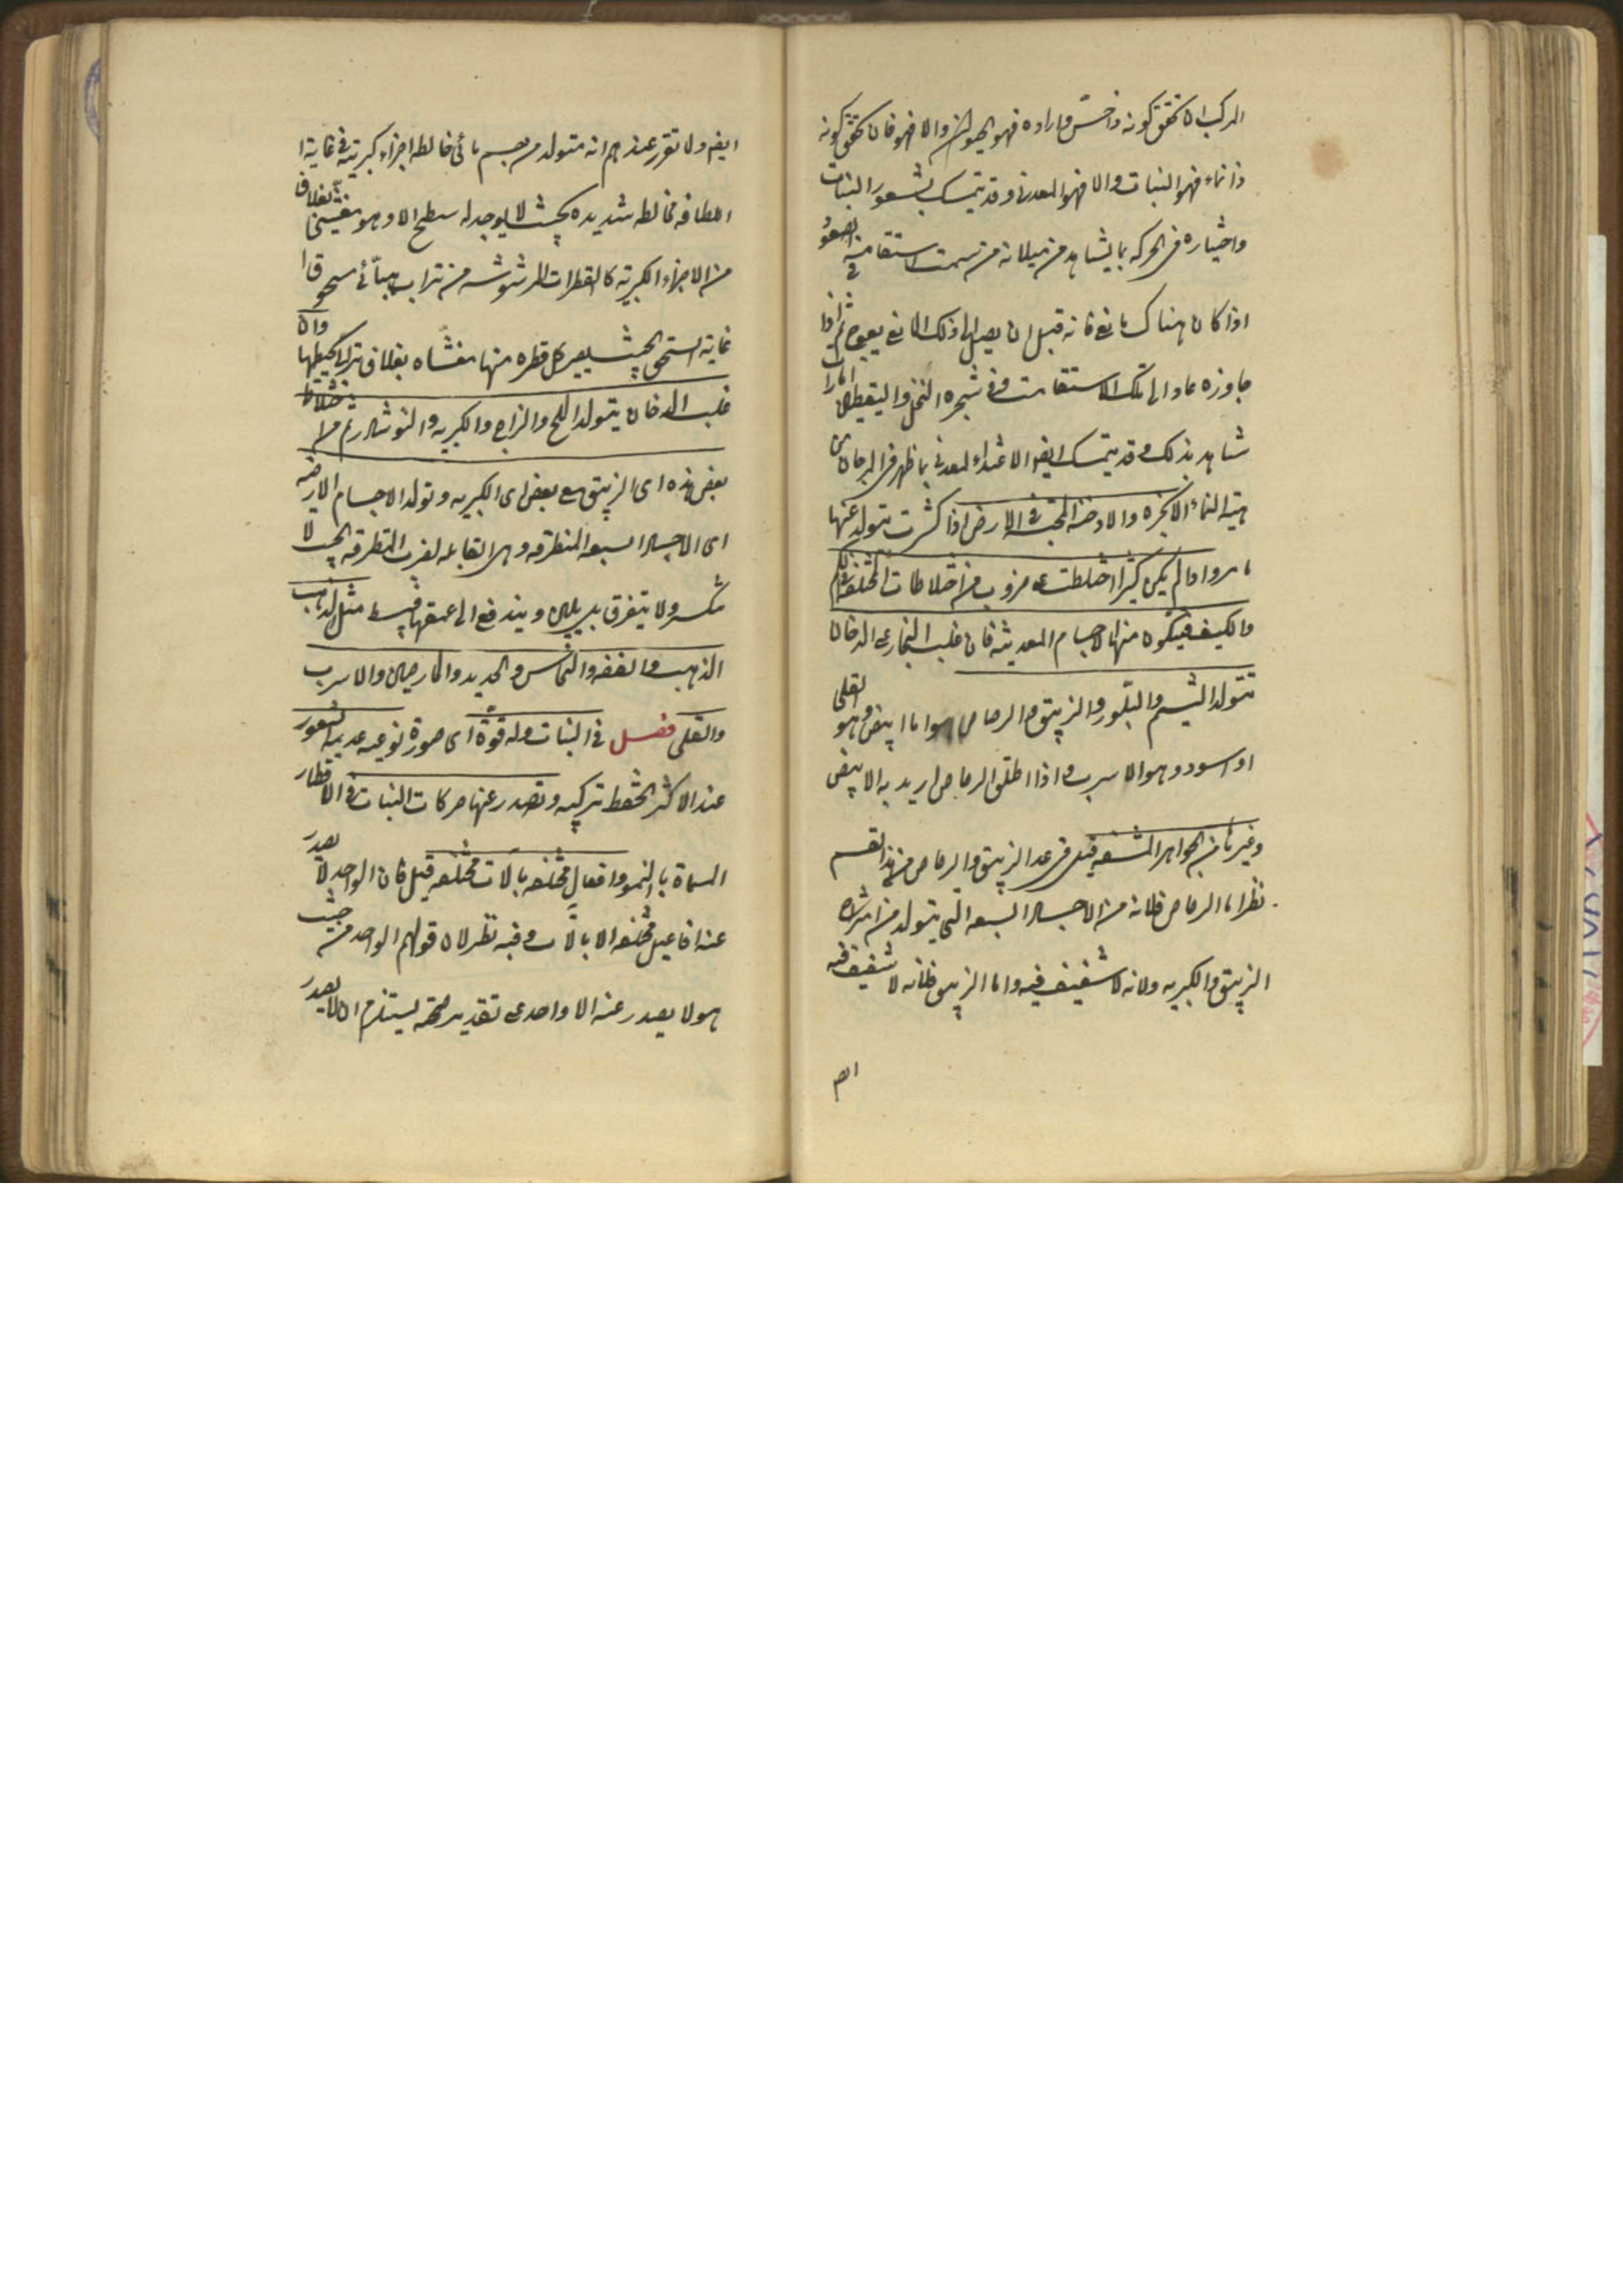 المركب ان تحقق كونه ذا حس وارادة فهو الحيوان والا فهو فان تحقق كونه
ذا نماء فهو النبات والا فهو المعدن وقد يتمسك بشعور النبات
واختياره فى الحركة بما يشاهد من ميلانه من سمت استقامته فى الصعود
اذا كان هناك مانع فانه قبل ان يصل الى ذلك المانع يعوج ثم اذا
جاوزه عاد الى تلك الاستقامت وفى شجرة النخل واليقطين امارات
شاهدة بذلك وقد يتمسك ايضا لاغتذاء المعدنى بما ظهر فى المرجان من
هيئة النماء الابخره والادخنة المحتبسة فى الارض اذا كثرت يتولد عنها
ما مر واذا لم يكن كثيرا اختلطت على ضروب من اختلاطات المختلفة فى الكم
والكيف فيتكون منها الاجسام المعدنية فان غلب البخار على الدخان
تتولد اليشم والبلور والزيبق والرصاص سواء اما ابيض وهو القلعى
او اسود وهو الاسرب واذا اطلق الرصاص اريد به الابيض
وغيرها من الجواهر المشفة قيل فى عد الزيبق والرصاص من هذا القسم
نظر اما الرصاص فلانه من الاجساد السبعة التى يتولد من امتزاج
الزيبق والكبريت ولانه لا شفيف فيه واما الزيبق فلانه لا شفيف فيه
ايضا
ايضا ولما تقرر عندهم انه متولد من جسم مائى خالطه اجزاء كبريتية فى غاية
اللطافة مخالطة شديدة بحيث لا يوجد له سطح الا وهو مغشى بغلاف
من الاجزاء الكبريتية كالقطرات المرشوشة من تراب هبائى مسحوق
غاية السحق بحيث يصير كل قطرة منها مغشاة بغلاف ترابى يحيطها وان
غلب الدخان يتولد الملح والزاج والكبريت والنوشادر ثم من اختلاط
بعض هذه اى الزيبق مع بعض اى الكبريت وتولد الاجسام الارضية
اى الاجساد السبعة المنطرقة وهى القابلة لضرب المطرقة بحيث لا
تنكسر ولا يتفرق بل يلين ويندفع الى عمقها فينبسط مثل الذهب
الذهب والفضة والنحاس والحديد والخارصين والاسرب
والقلعى فصل فى النبات وله قوة اى صورة نوعية عديمة الشعور
عند الاكثر تحفظ تركيبه وتصدر عنها حركات النبات فى الاقطار
المسماة بالنمو وافعال مختلفة بالات مختلفة قيل فان الواحد لا يصدر
عنه افاعيل مختلفة الا بالات وفيه نظر لان قولهم الواحد من حيث
هو لا يصدر عنه الا واحد على تقدير صحته يستلزم ان لا يصدر